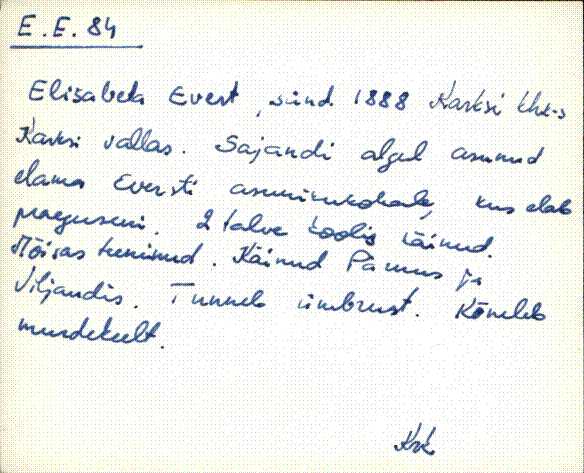 E. E. 84
Elisabeta Evert, sünd. 1888 Karksi khk-s
Karksi vallas. Sajandi algul asunud
elama Eversti asunikukohale, kus elab
praeguseni. 2 talve koolis käinud.
Mõisas teeninud. Käinud Pärnus ja
Viljandis. Tunneb ümbrust. Kõneleb
murdekeelt.
Krk